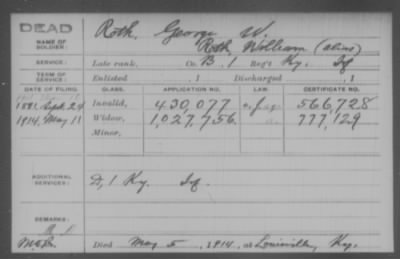 DEAD
NAME OF SOLDIER:
Roth, George W.
Roth, William (alias)
SERVICE:
Late rank, Co. B, 1 Reg't Ky. Inf
TERM OF SERVICE:
Enlisted , 1 Discharged , 1
DATE OF FILING. CLASS. APPLICATION NO. LAW. CERTIFICATE NO.
1881, Sept. 24 Invalid, 430,077 566,728
1914, May 11 Widow, 1,027,756 777,129
Minor,
ADDITIONAL SERVICES:
D, 1 Ky. Inf.
REMARKS:
Died May 5, 1914, at Louisville, Ky.